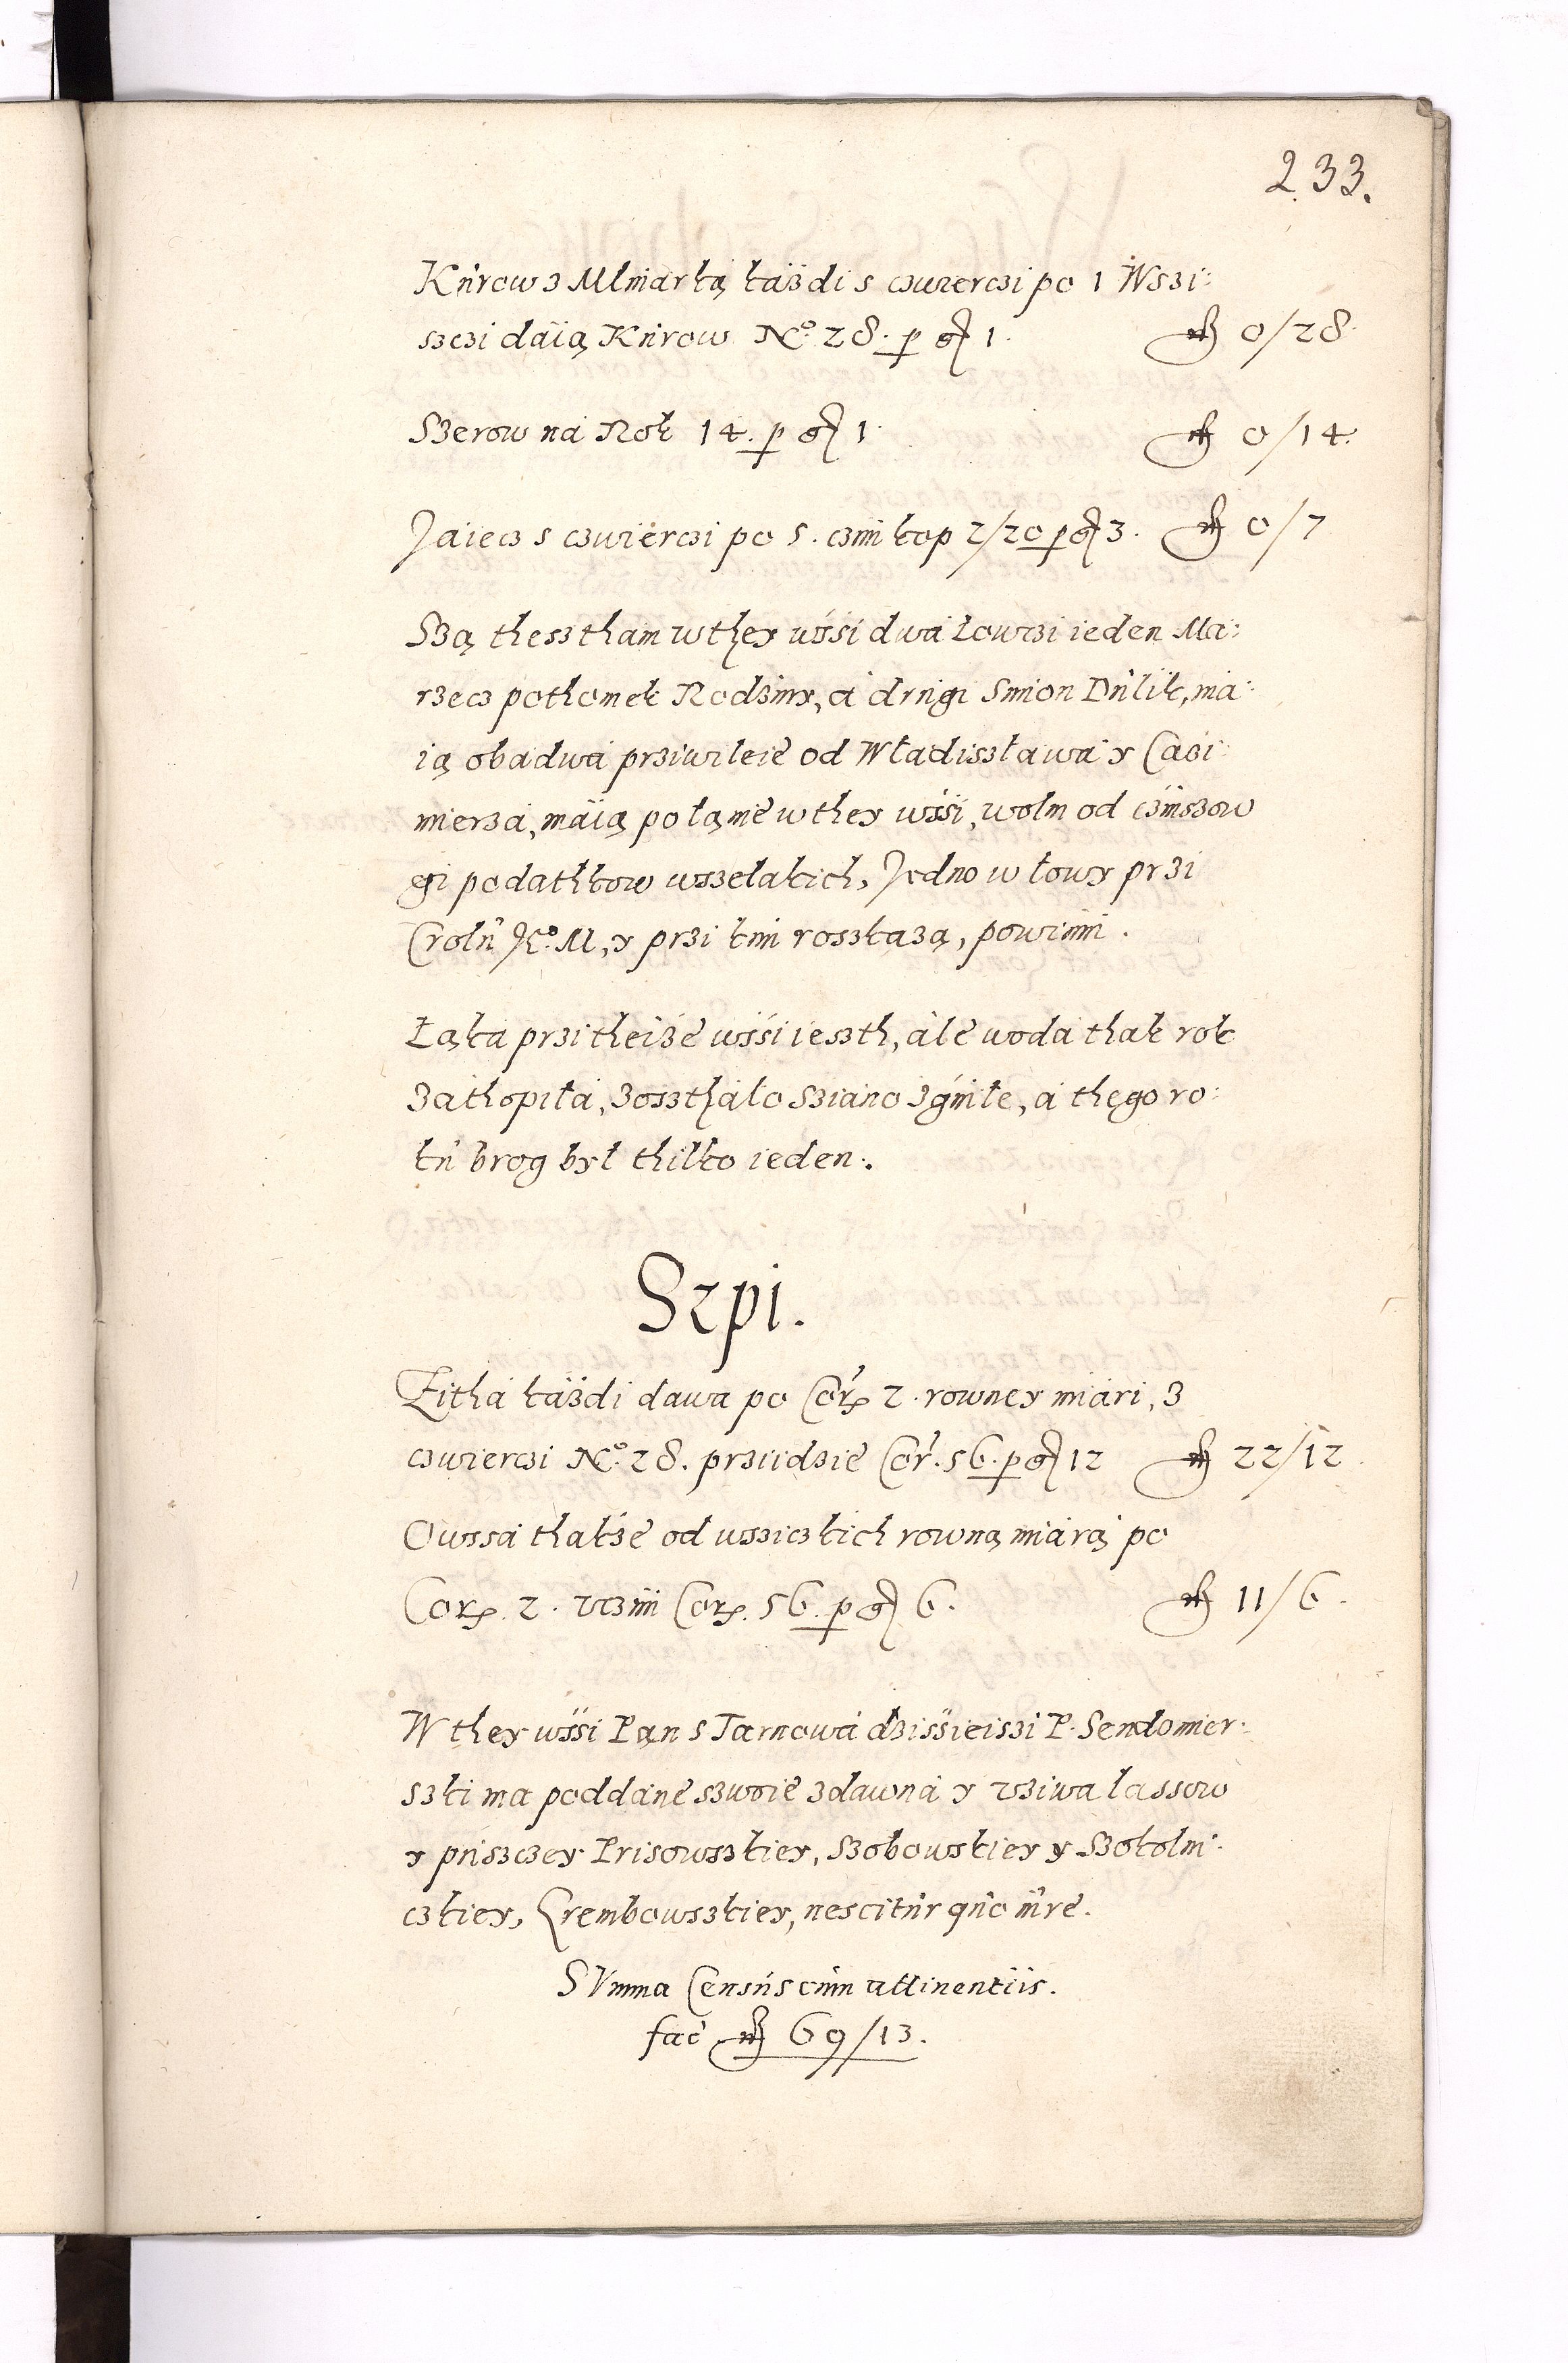 233.
Kurow z Mlinarką każdi s czwierczi po 1 Wszi:
szczi daią Kurow No. 28. p gr 1. mrc 0/28.
Szerow na Rok 14. p gr 1. mrc 0/14.
Jaiecz s czwierczi po 5. czini kop 2/20 p gr 3. mrc 0/7
Szą thesz tham w they wssi dwa Łowczi ieden Ma:
rzecz pothomek Rodziny, a drugi Simon Dulik, ma:
ią obadwa prziwileie od Władiszława y Cazi:
mierza, maią po łanie w they wssi, wolni od czinszow
y podathkow wszelakich, Jedno w łowy przi
Crolu Je°. M, y przi kim roszkażą, powinni.
Łąka przi theiże wssi ieszth, ale woda thak rok
zathopiła, zoszthało sziano zgniłe, a thego ro:
ku brog był thilko ieden.
Szpi.
Żitha każdi dawa po Cor. 2. rowney miari, z
czwierczi No. 28. prziidzie Cor. 56. p gr 12 mrc 22/12.
Owssa thakże od wsziczkich rowną miarą po
Cor. 2. vczini Cor. 56. p gr 6. mrc 11/6.
W they wssi Pan s Tarnowa dzissieiszi P. Sendomier:
szki ma poddane szwoie zdawna y vżiwa lassow
y pusczey Prisowszkiey, Szobowskiey y Szokolni:
czkiey, Grembowszkiey, nescitur quo iure.
SVmma Census cum attinentiis.
fac mrc 69/13.